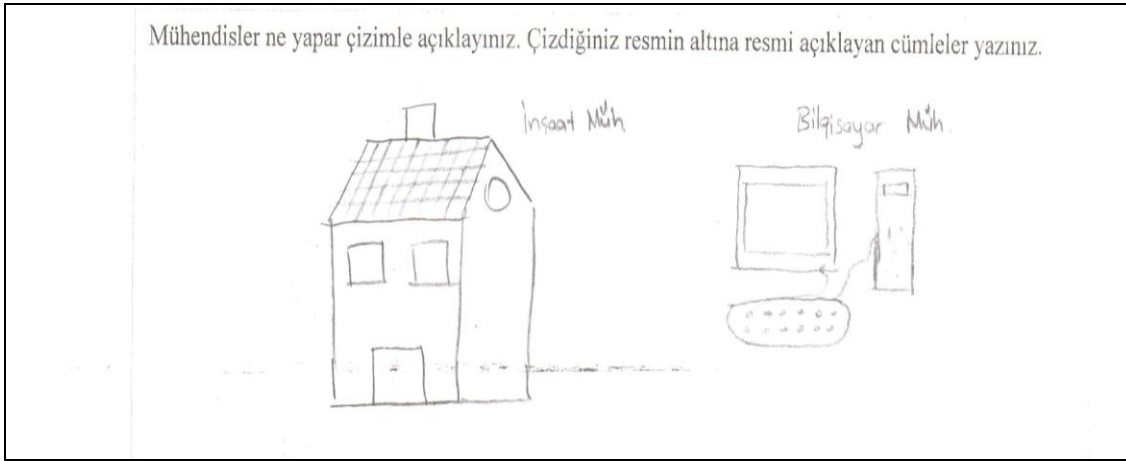 Mühendisler ne yapar çizimle açıklayınız. Çizdiğiniz resmin altına resmi açıklayan cümleler yazınız.
İnşaat Müh
Bilgisayar Müh.